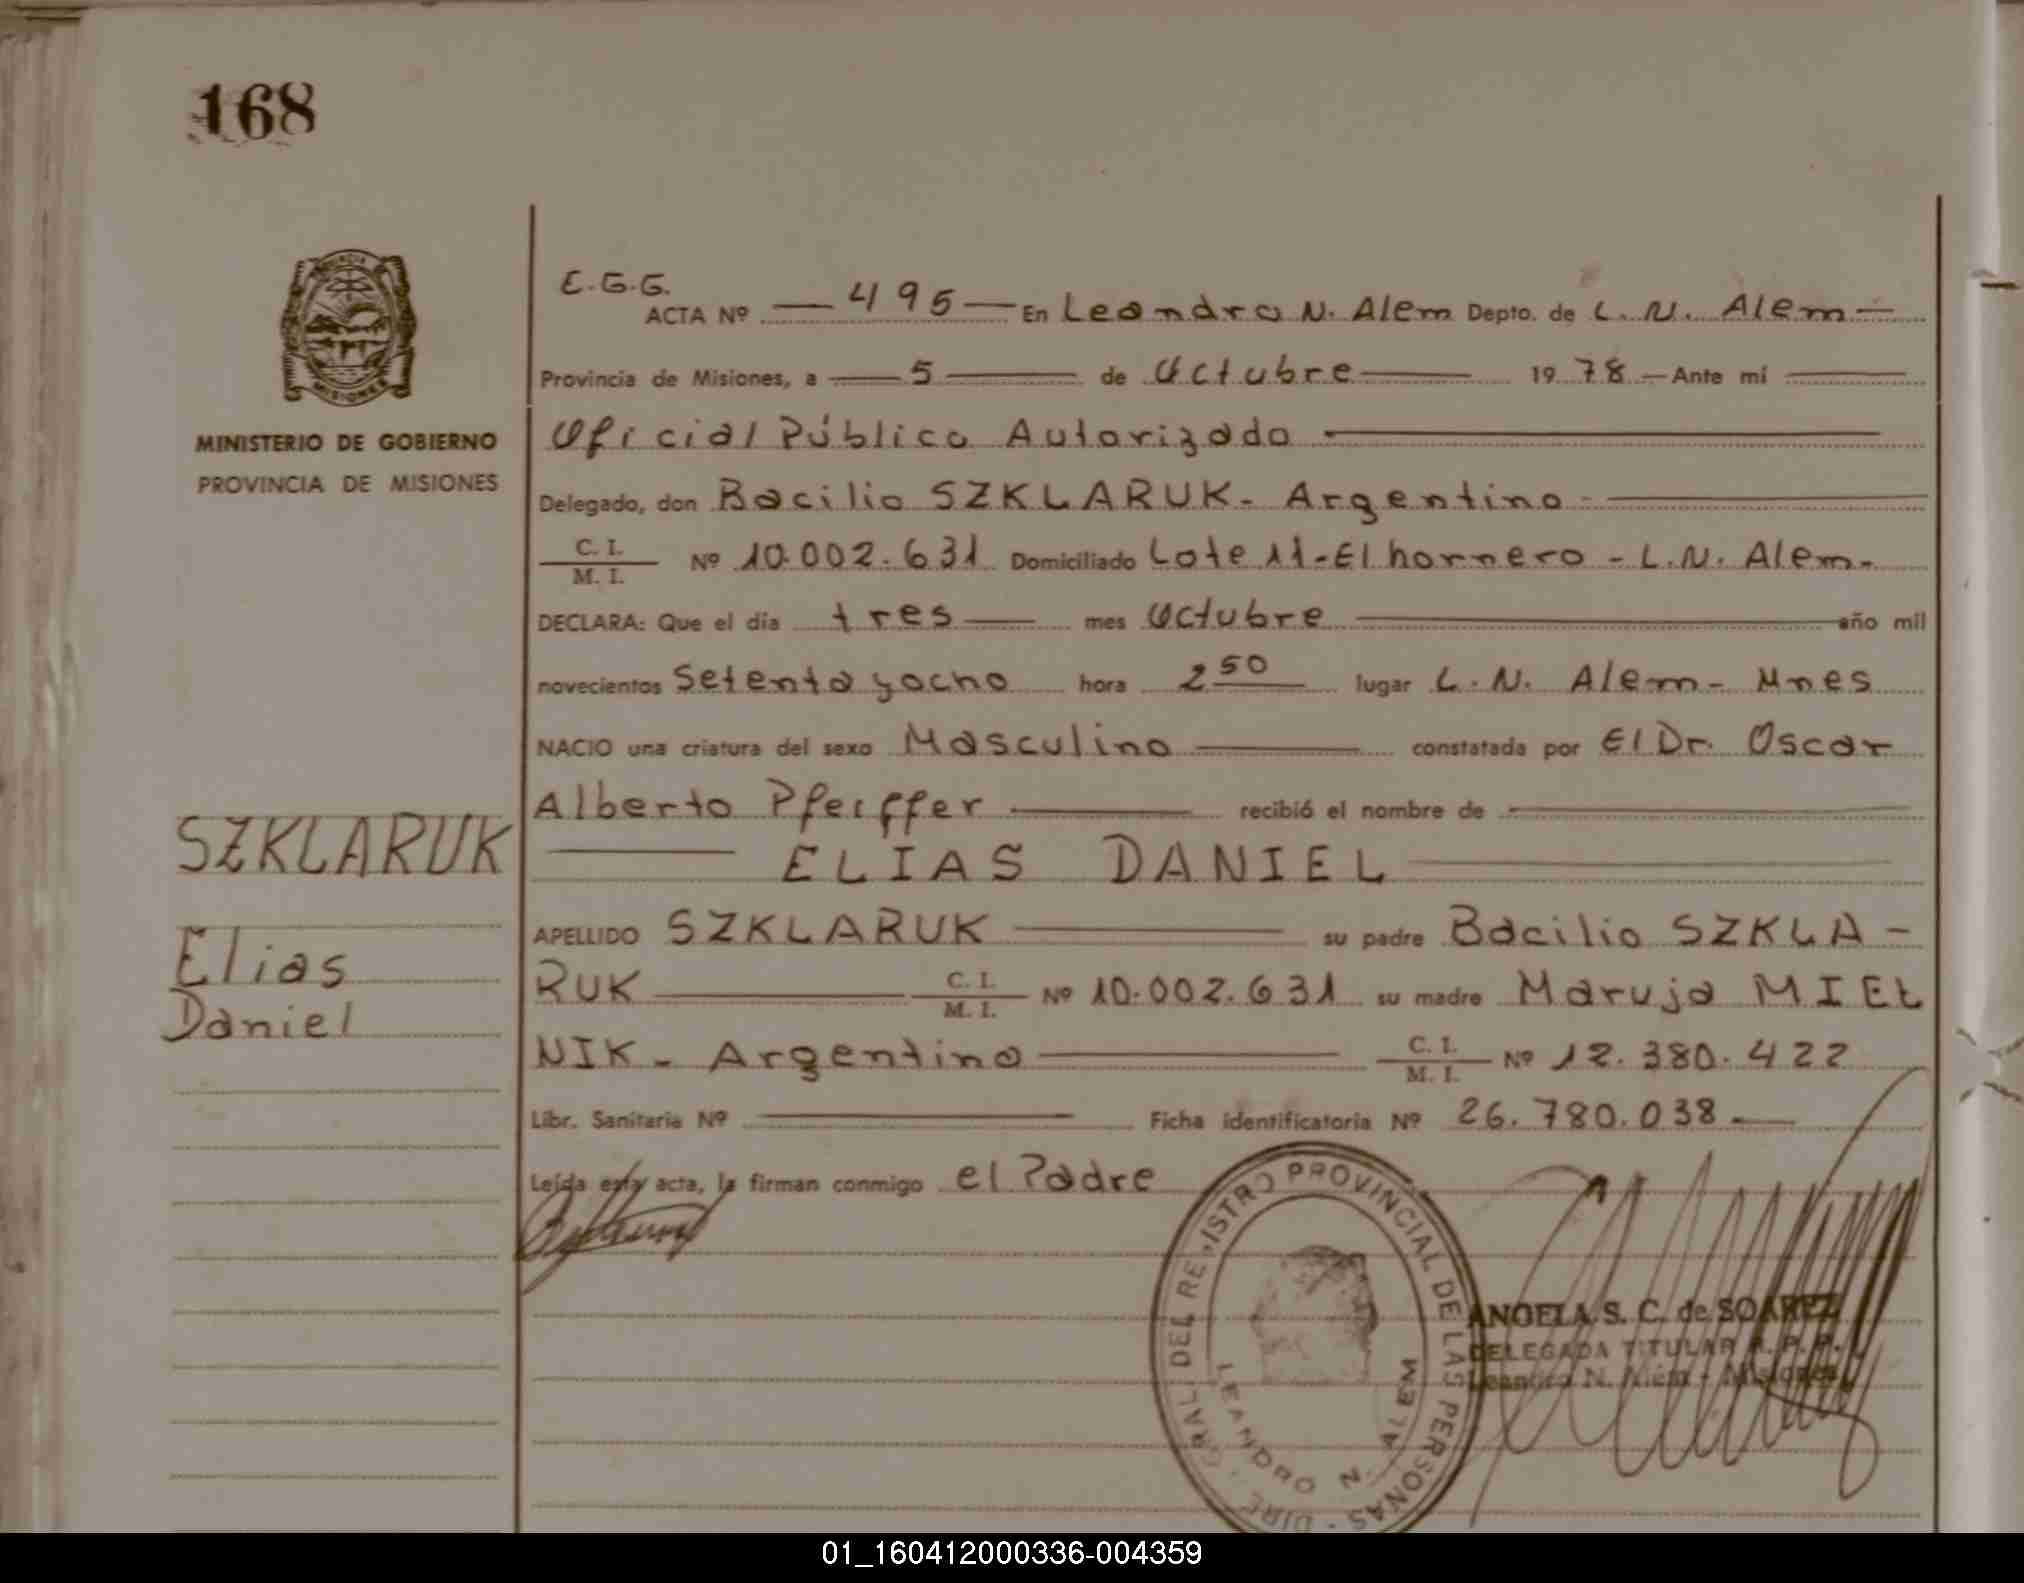 168
E.G.G.
ACTA Nº 495 En Leandro N. Alem Depto. de L. N. Alem
Provincia de Misiones, a 5 de Octubre 19 78 Ante mí
Oficial Público Autorizado
Delegado, don Bacilio SZKLARUK - Argentino
C. I.
M. I. Nº 10.002.631 Domiciliado Lote 11 - El hornero - L.N. Alem.
DECLARA: Que el día tres mes Octubre año mil
novecientos Setenta y ocho hora 2 50 lugar L. N. Alem - Mnes
NACIO una criatura del sexo Masculino constatada por El Dr. Oscar
Alberto Pfeiffer recibió el nombre de
ELIAS DANIEL
APELLIDO SZKLARUK su padre Bacilio SZKLA -
RUK C. I.
M. I. Nº 10.002.631 su madre Maruja MIEL
NIK - Argentina C. I.
M. I. Nº 12.380.422
Libr. Sanitaria Nº Ficha identificatoria Nº 26.780.038
Leída esta acta, la firman conmigo el Padre
MISIONES
MINISTERIO DE GOBIERNO
PROVINCIA DE MISIONES
SZKLARUK
Elias
Daniel
GRAL. DEL REGISTRO PROVINCIAL DE LAS PERSONAS - DIRE
LEANDRO N. ALEM
ANGELA S. C. de SOAREZ
DELEGADA TITULAR R. P. P.
Leandro N. Alem - Misiones
01_160412000336-004359